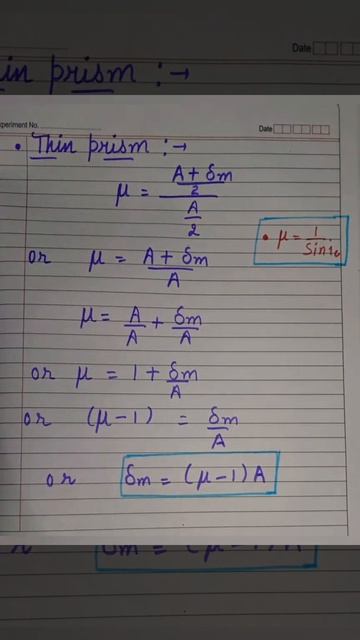 Date
in prism :→
xperiment No.
Date
• Thin prism :→
μ = (A + δm)/2 / A/2
• μ = 1/Sin ic
or μ = (A + δm)/A
μ = A/A + δm/A
or μ = 1 + δm/A
or (μ - 1) = δm/A
or δm = (μ - 1) A